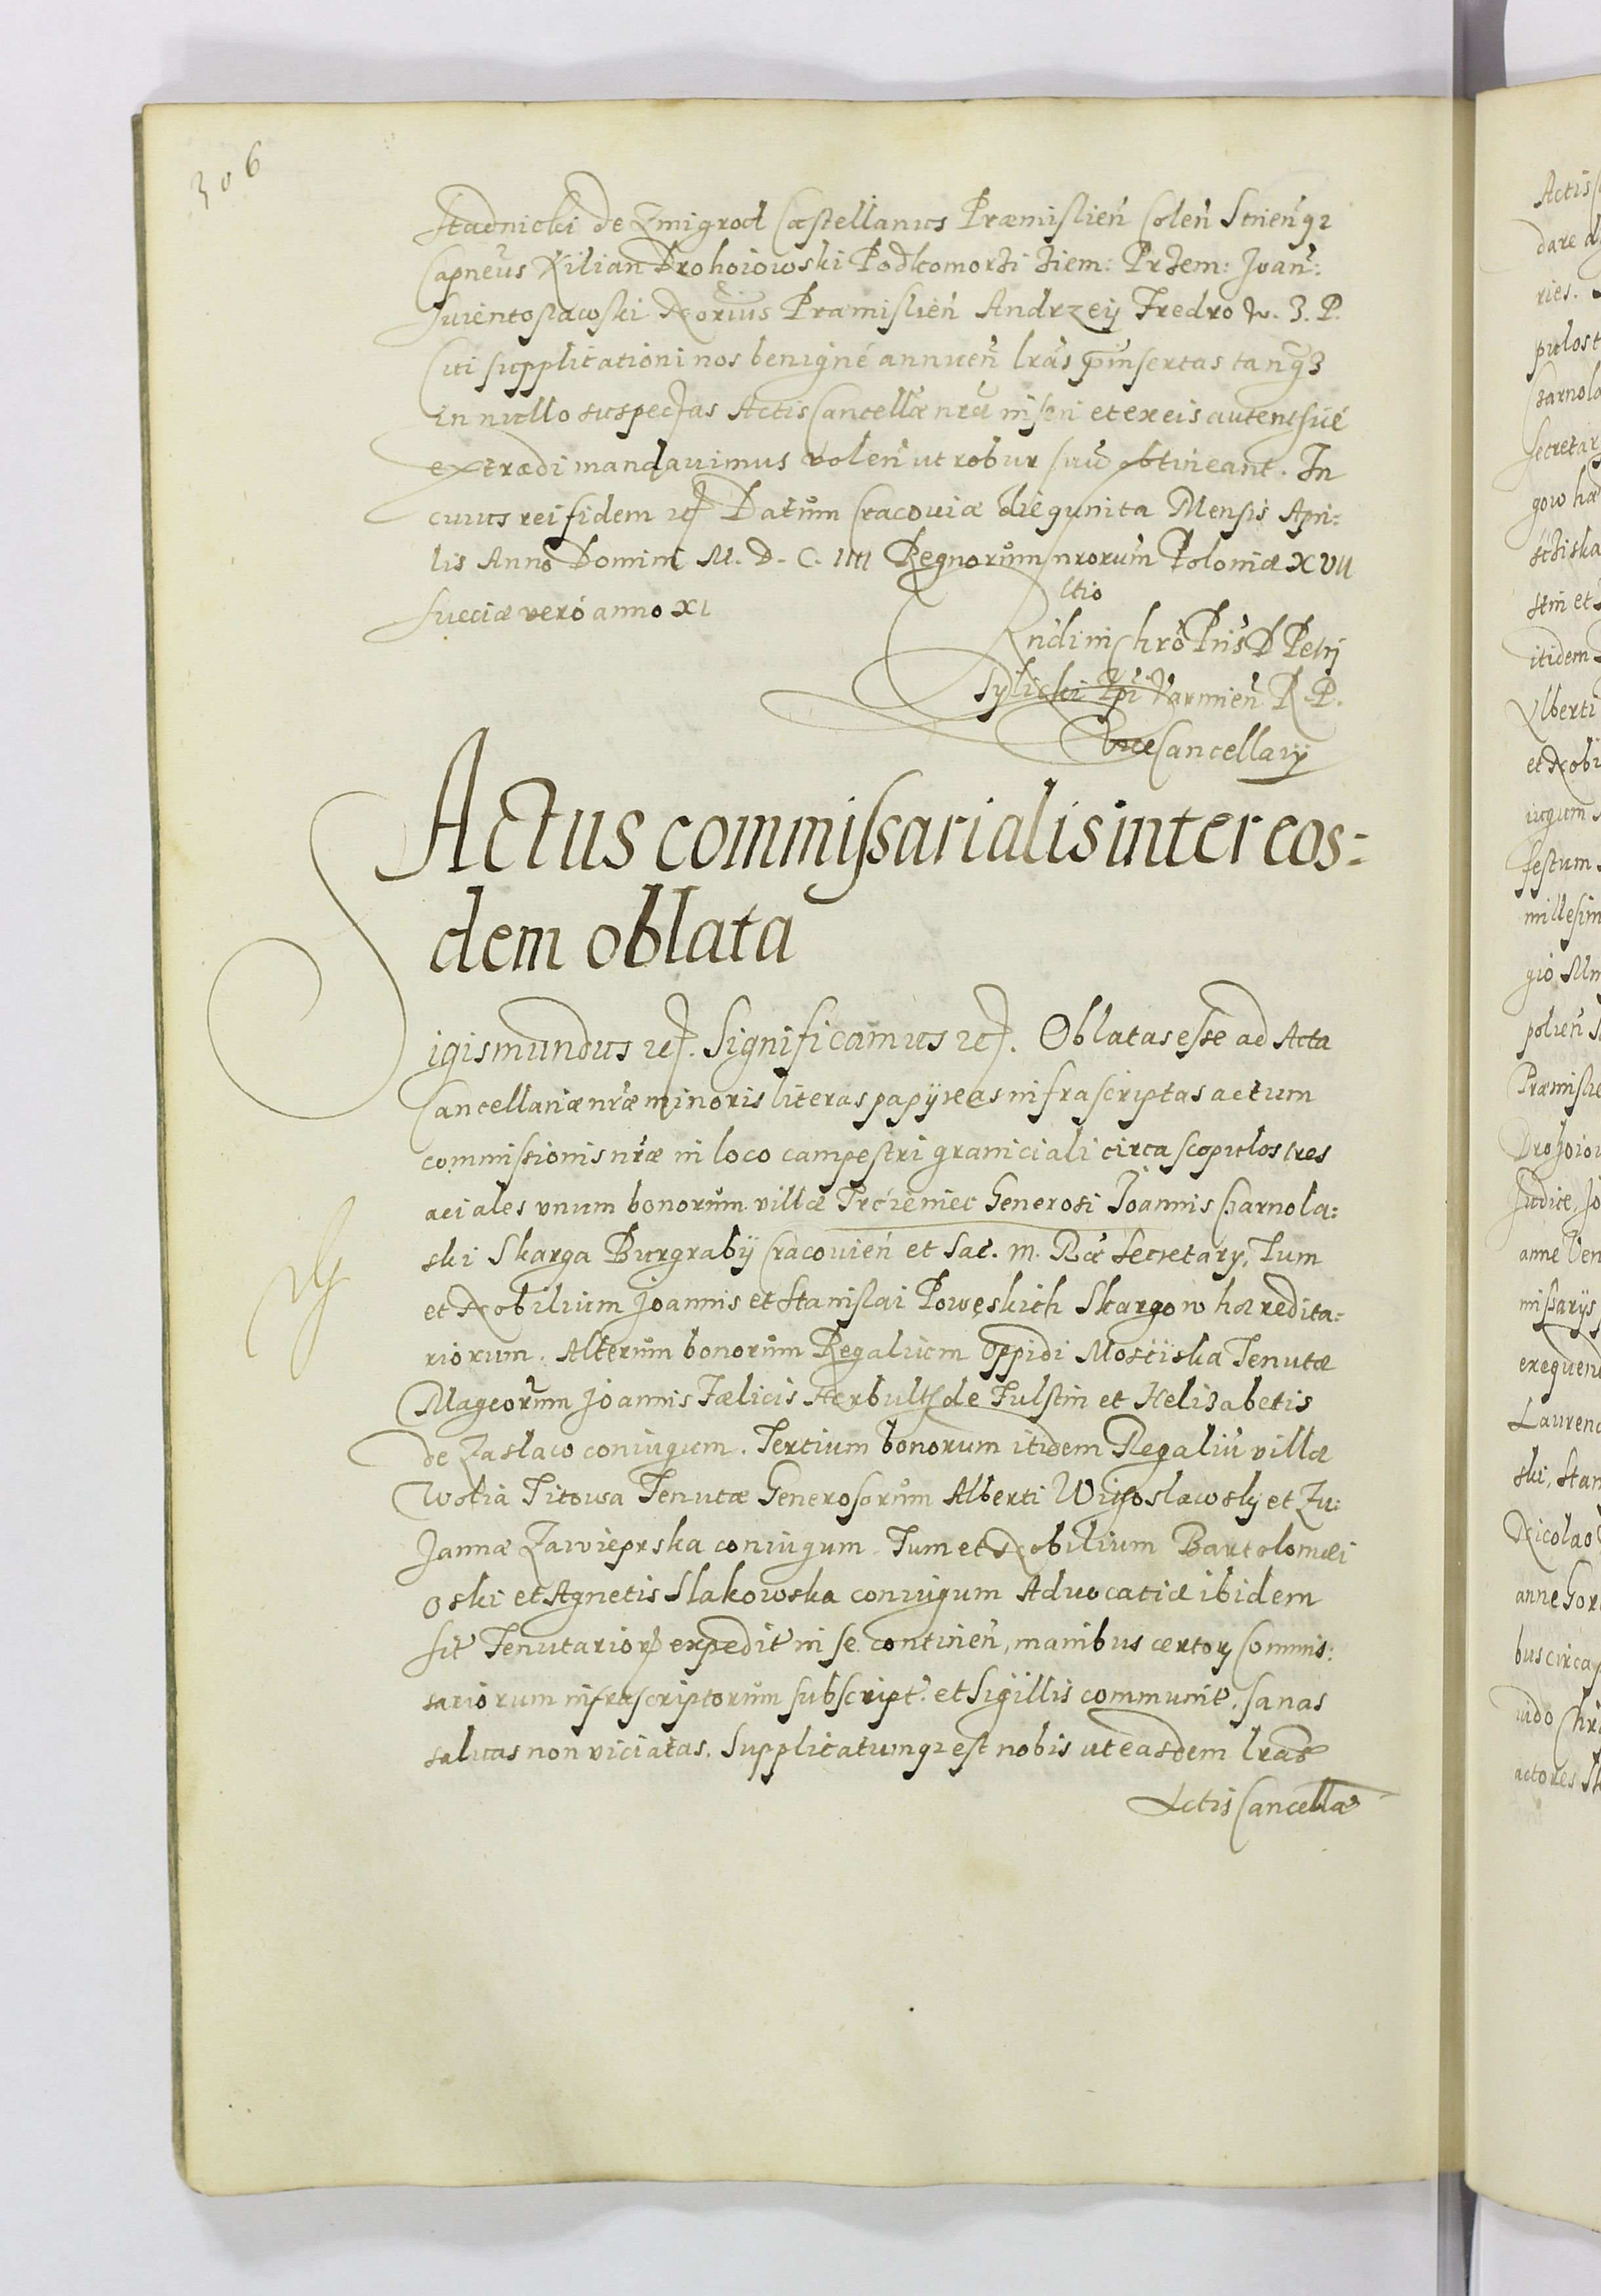 306
Stadnicki de Zmigrod Castellanus Præmislien̄ Colen̄ Strien̄q2
Capneus Kilian Drohoiowski Podkomorzi Ziem: Przem: Joan̄:
Swientoslawski Norius Præmislien̄ Andrzeÿ Fredro W. Z. P.
Cui supplicationi nos benignè annuen̄ lr̄as p̄insertas tanq̄3
in nullo suspectas Actis Cancellæ nr̄æ inseri et ex eis autent sue
extradi mandauimus volen̄ ut robur suū obtineant. In
cuius rei fidem etc Datum Cracouiæ die qunita Mensis Apri:
lis Anno Domini M. D. C. IIII Regnorum nrorum Poloniæ XVII
Sueciæ vero anno XI
ltio
Rndi in Chrō Pris D Petri
Tylicki Epi Varmien̄ R. P.
Vice Cancellarÿ
Actus commissarialis inter eos:
dem oblata
Sigismundus etc. Significamus etc. Oblatas esse ad Acta
Cancellariæ nr̄æ minoris literas papÿreas infrascriptas actum
commissionis nr̄æ in loco campestri graniciali circa scopulos tres
aciales vnum bonorum villæ Trcieniec Generosi Joannis Czarnola:
ski Skarga Burgrabÿ Cracouien̄ et Sac. m. Ræ Secretarÿ, Tum
et Nobilium Joannis et Stanislai Powęskich Skargow hæredita:
riorum. Alterum bonorum Regalium Oppidi Mosciska Tenutæ
Magcorum Joannis Fælicis Herbult de Fulstin et Helizabetis
de Zaslaw coniugum. Tertium bonorum itidem Regaliū villæ
Wolia Titowa Tenutæ Generosorum Alberti Wigoslawsky et Zu:
Jannæ Zawieprska coniugum. Tum et Nobilium Bartolomæi
Oski et Agnetis Slakowska coniugum Aduocatiæ ibidem
sit Tenutarior expedit in se continen̄, manibus certor Commis:
sariorum infrascriptorum subscript. et Sigillis communit. sanas
saluas non viciatas. Supplicatumq2 est nobis ut easdem lr̄as
Actis Cancellæ